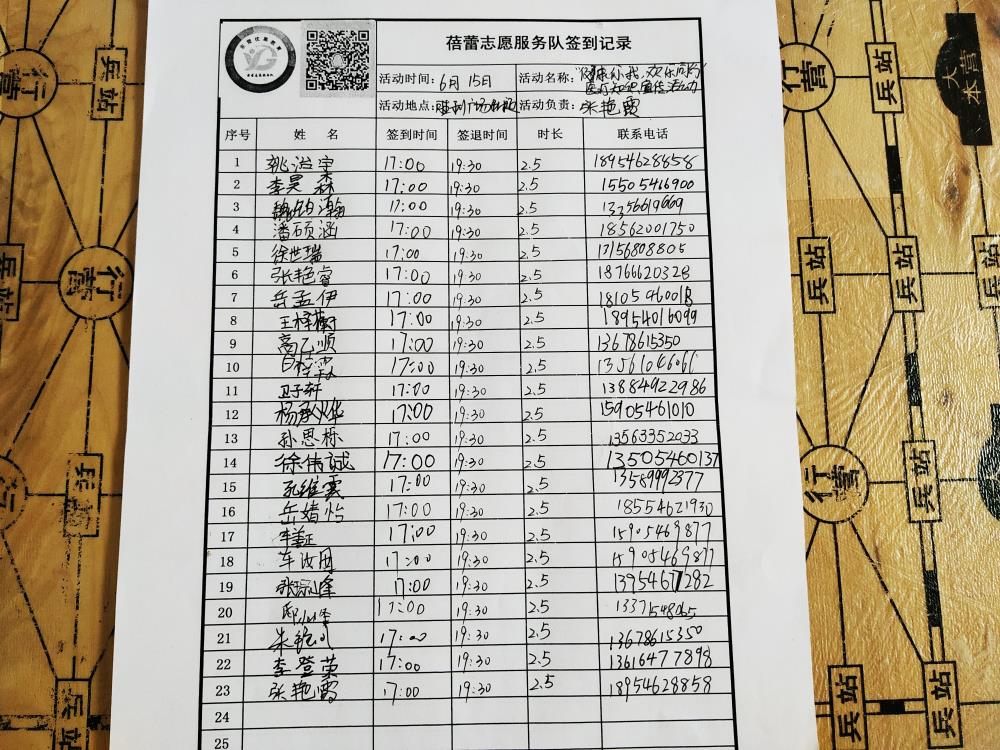 蓓蕾志愿服务队签到记录
活动时间:6月15日 活动名称:"健康分我,欢乐同约"
医疗知识宣传活动
活动地点:胜利广场 活动负责:张艳霞
序号 姓 名 签到时间 签退时间 时长 联系电话
1 姚溢宇 17:00 19:30 2.5 18954628858
2 李昊森 17:00 19:30 2.5 15505416900
3 魏钧瀚 17:00 19:30 2.5 13356619669
4 潘硕涵 17:00 19:30 2.5 18562001750
5 徐世瑞 17:00 19:30 2.5 17156808805
6 张艳睿 17:00 19:30 2.5 18766620328
7 岳孟伊 17:00 19:30 2.5
8 王梓衡 17:00 19:30 2.5 18954016099
9 高乙顺 17:00 19:30 2.5 13678615350
10 白梓霖 17:00 19:30 2.5 13561046061
11 卫子轩 17:00 19:30 2.5 13884922986
12 杨承烨 17:00 19:30 2.5 15905461010
13 孙思栎 17:00 19:30 2.5 13563352033
14 徐伟誠 17:00 19:30 2.5 13505460137
15 孔维震 17:00 19:30 2.5 13589992377
16 岳婧怡 17:00 19:30 2.5 18554621930
17 17:00 19:30 2.5 15905469877
18 车汝国 17:00 19:30 2.5 15905469877
19 17:00 19:30 2.5 13954677282
20 17:00 19:30 2.5 13371548065
21 17:00 19:30 2.5 13678615350
22 李登荣 17:00 19:30 2.5 13616477898
23 张艳霞 17:00 19:30 2.5 18954628858
24
25
行营
兵站
大本营
兵站
行营
兵站
兵站
兵站
行营
兵站
兵站
行营
兵站
兵站
兵站
兵站